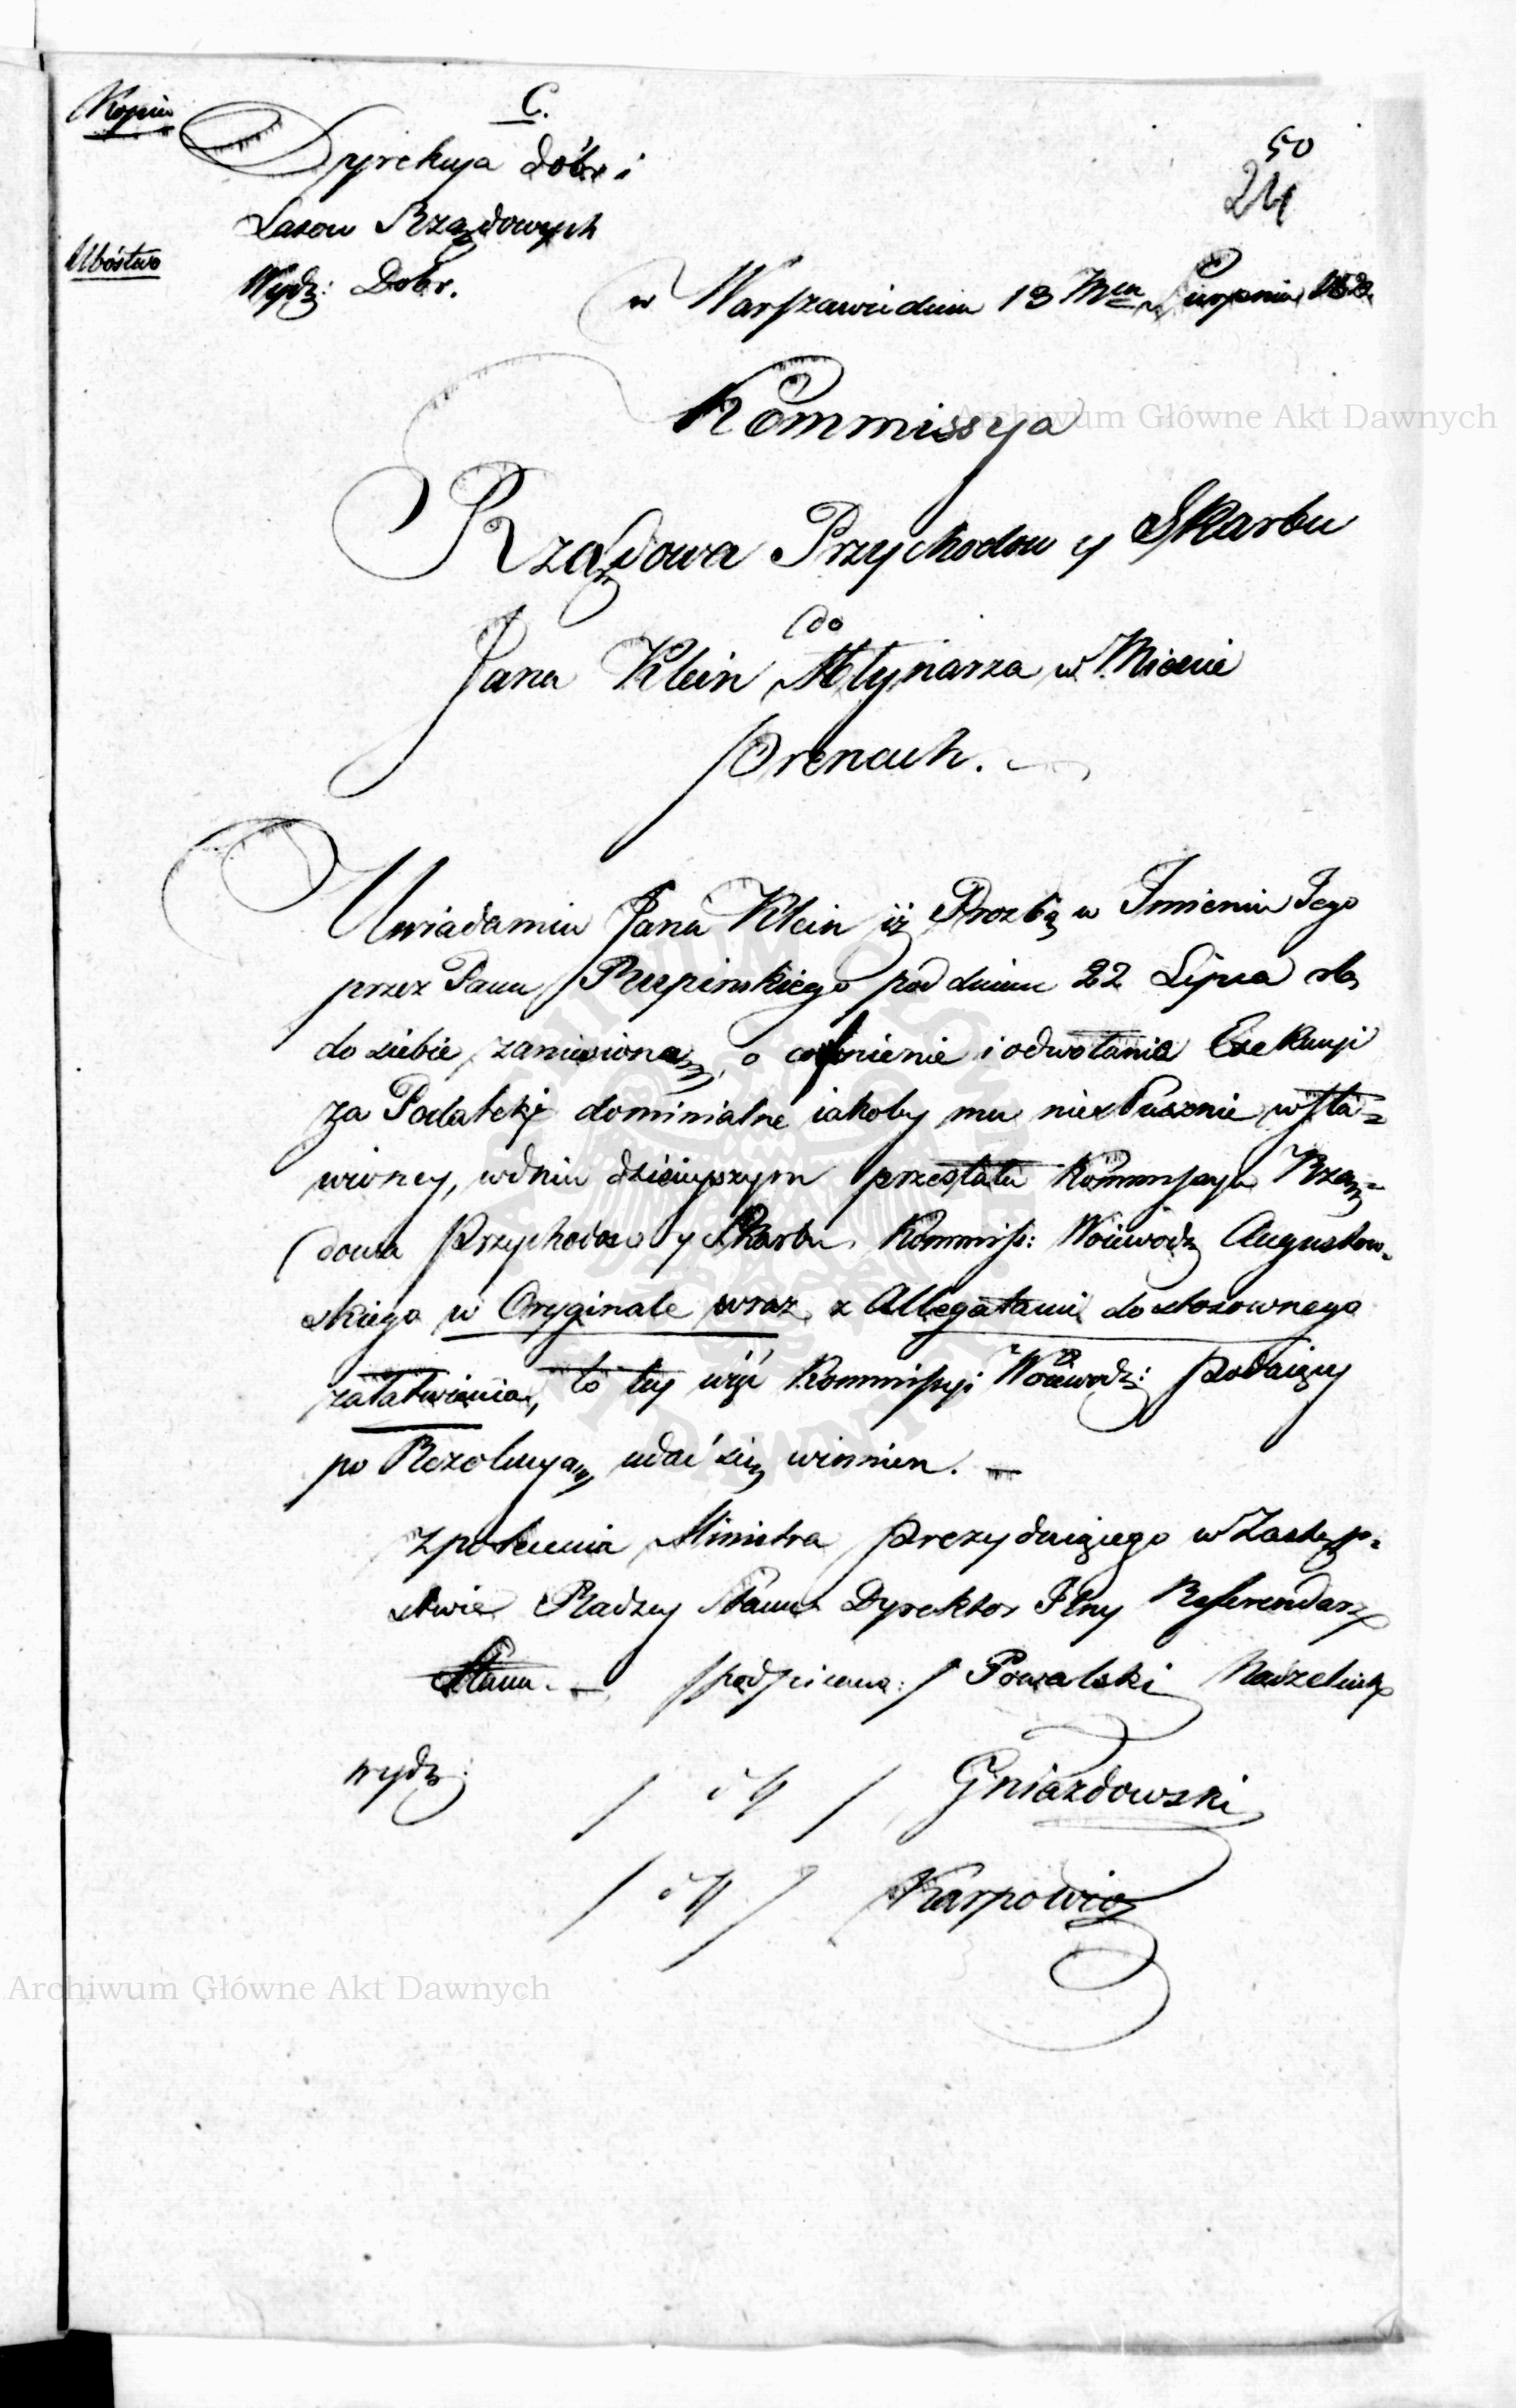 Kopia
C.
Dyrekcya Dóbr i
Lasow Rządowych
Ubóstwo
Wydz: Dobr.
50
24
w Warszawie dnia 13 Mca Sierpnia
Kommissya
Rządowa Przychodow y Skarbu
do
Jana Klein Młynarza w Mieście
Prenach.
Uwiadamia Jana Klein iż Prozbę w Imieniu Jego
przez Pana Rupinskiego pod dniem 22 Lipca rb
do siebie zaniesioną, o cofnienie i odwołanie Exekucyi
za Podatki dominialne iakoby mu niesłusznie wsta=
wioney, w dniu dzisieyszym przesłała Kommissya Rzą=
dowa Przychodow y Skarbu Kommiss: Woiewodz Augustow=
skiego w Oryginale wraz z Allegatami do stosownego
załatwienia, to tey więc Kommissyi Woiewodz: Podaiący
po Rezolucyą udać się winien. —
Z polecenia Ministra Prezyduiącego w Zastęp=
stwie Radzcy Stanu Dyrektor Jlny Referendarz
Stanu. — /podpisano:/ Powalski Naczelnik
wydz:
/ / Gniazdowski
/ / Karpowicz
Archiwum Główne Akt Dawnych
Archiwum Główne Akt Dawnych